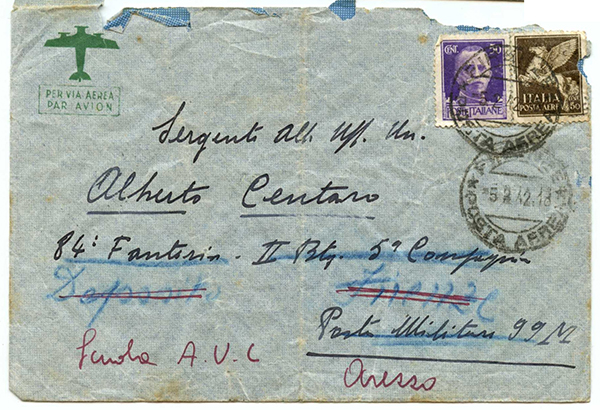 PER VIA AEREA
PAR AVION
CENT. 50
POSTE ITALIANE
ITALIA
POSTA AEREA
50
POSTA AEREA
5.2.42.18
POSTA AEREA
Sergente All. Uff. Un.
Alberto Centaro
84º Fanteria - II Btg. 5ª Compagnia
Deposito Firenze
Posta Militare 99 M
Scuola A.U.C
Arezzo